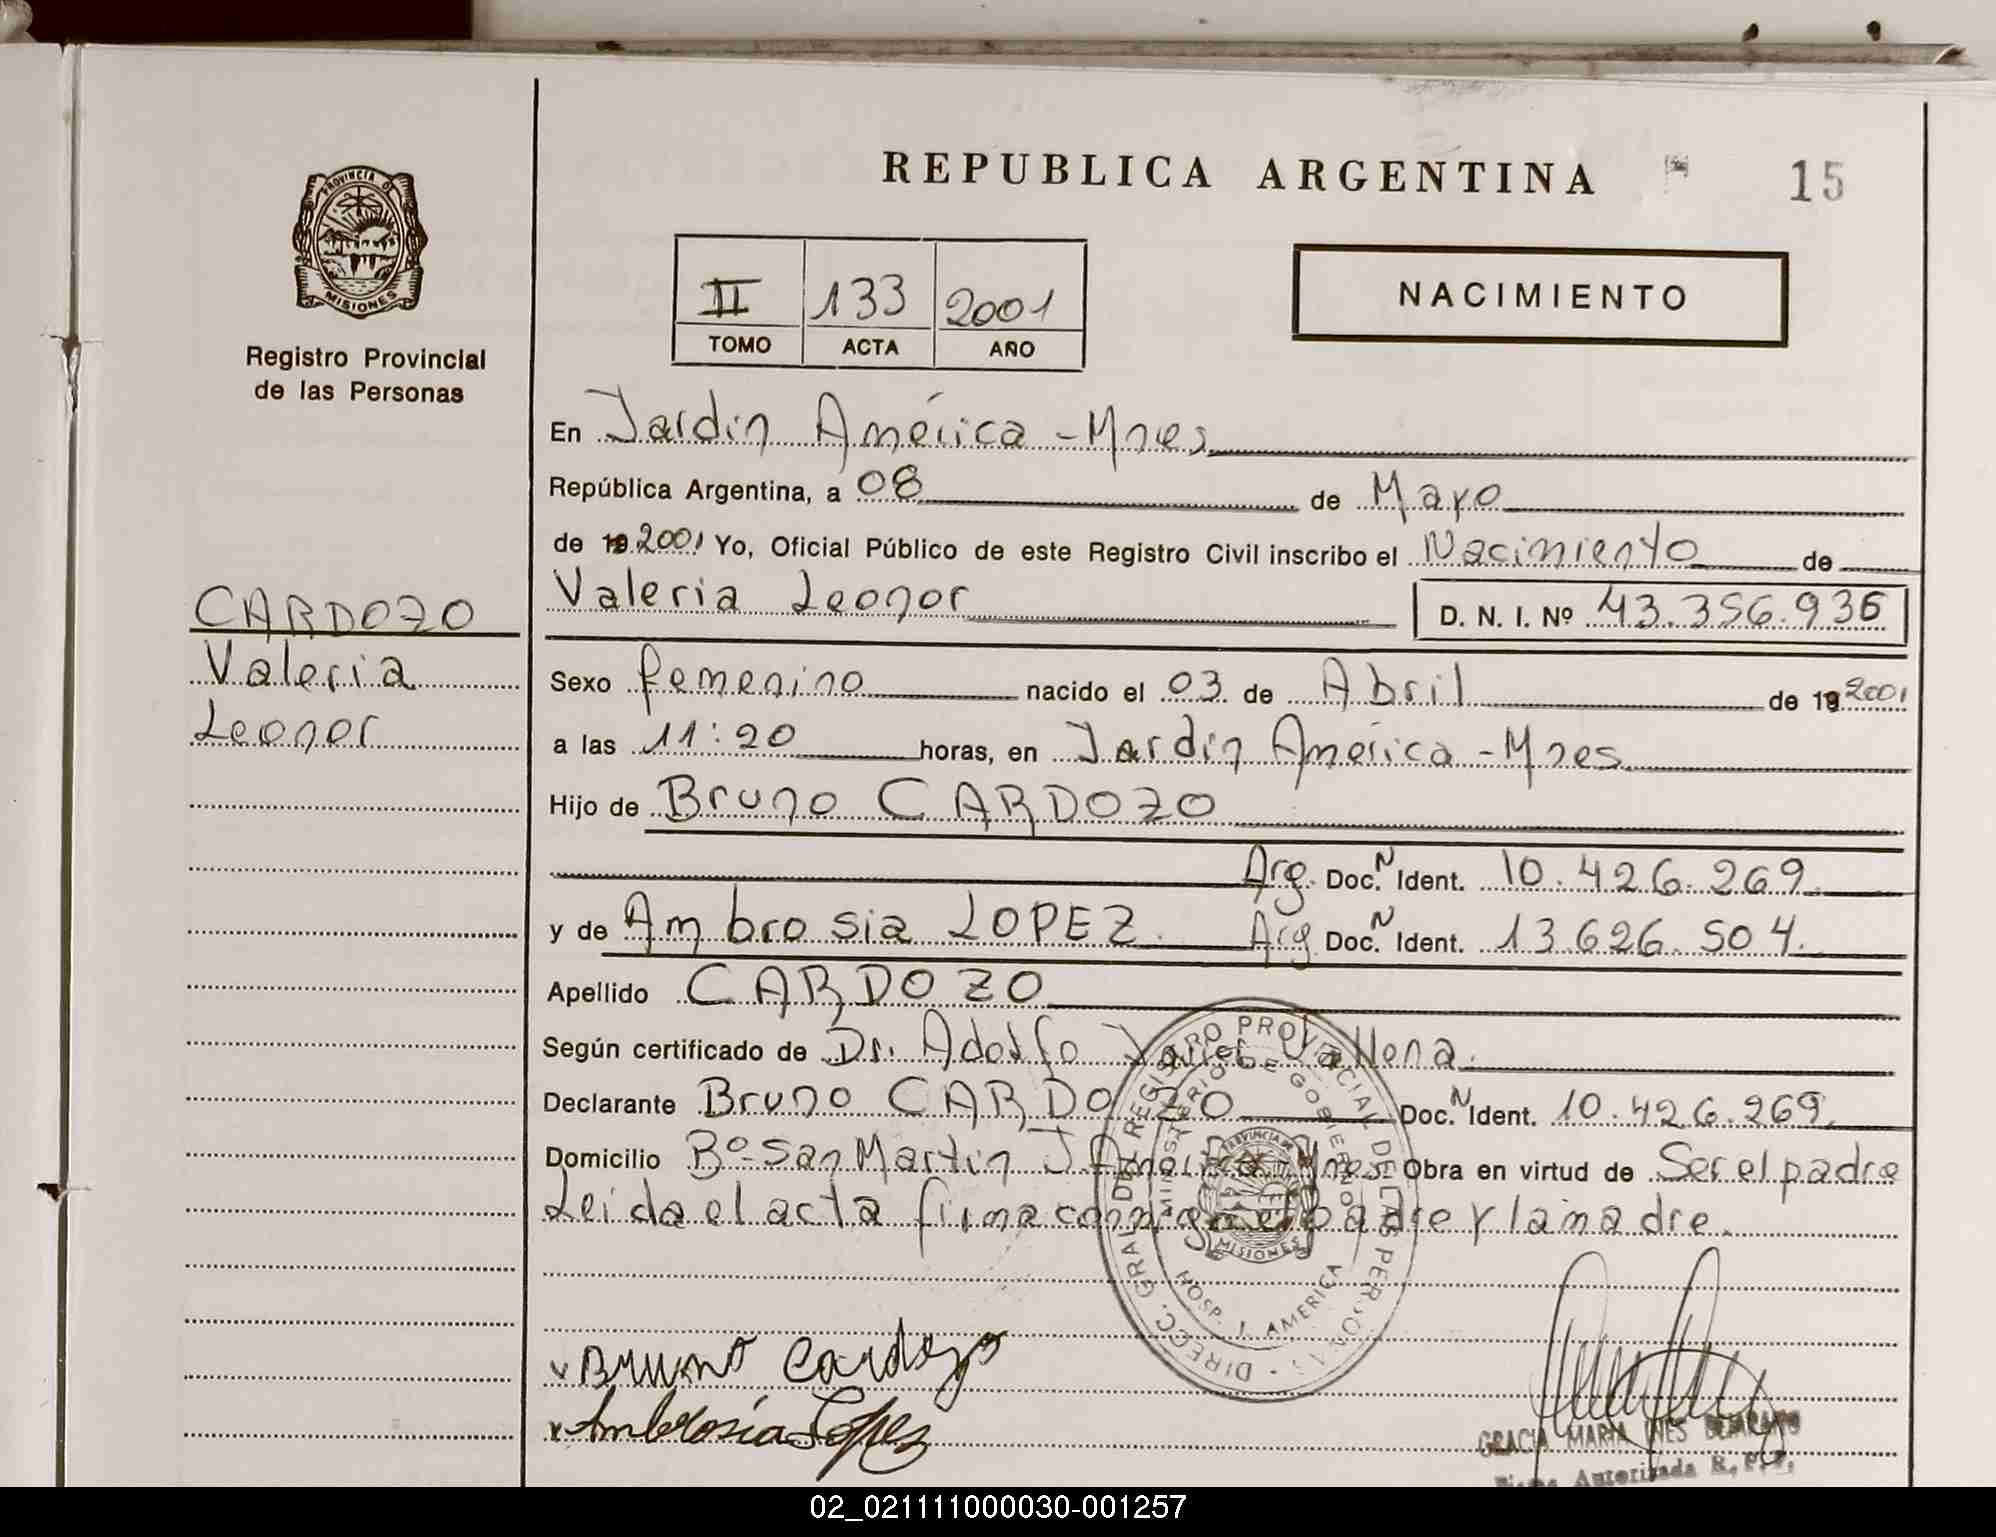 REPUBLICA ARGENTINA
15
PROVINCIA DE
MISIONES
Registro Provincial
de las Personas
II 133 2001
TOMO ACTA AÑO
NACIMIENTO
En Jardín América - Mnes
República Argentina, a 08 de Mayo
de 19 2001 Yo, Oficial Público de este Registro Civil inscribo el Nacimiento de
Valeria Leonor D. N. I. Nº 43.356.936
CARDOZO
Valeria
Leonor
Sexo femenino nacido el 03 de Abril de 19 2001
a las 11:20 horas, en Jardín América - Mnes
Hijo de Bruno CARDOZO
Arg. Doc. N Ident. 10.426.269.
y de Ambrosia LOPEZ. Arg. Doc. N Ident. 13.626.504.
Apellido CARDOZO
Según certificado de Dr. Adolfo
Declarante Bruno CARDOZO Doc. N Ident. 10.426.269.
Domicilio Bº San Martin J. América - Mnes Obra en virtud de Ser el padre
Leida el acta firma conmigo el padre y la madre.
DIRECC. GRAL. DEL REGISTRO PROVINCIAL DE LAS PERSONAS
MINISTERIO DE GOBIERNO
PROVINCIA DE
MISIONES
HOSP. J. AMERICA
Bruno Cardozo
Ambrosia Lopez
GRACIA MARIA INES
Autorizada R. P. P.
02_021111000030-001257